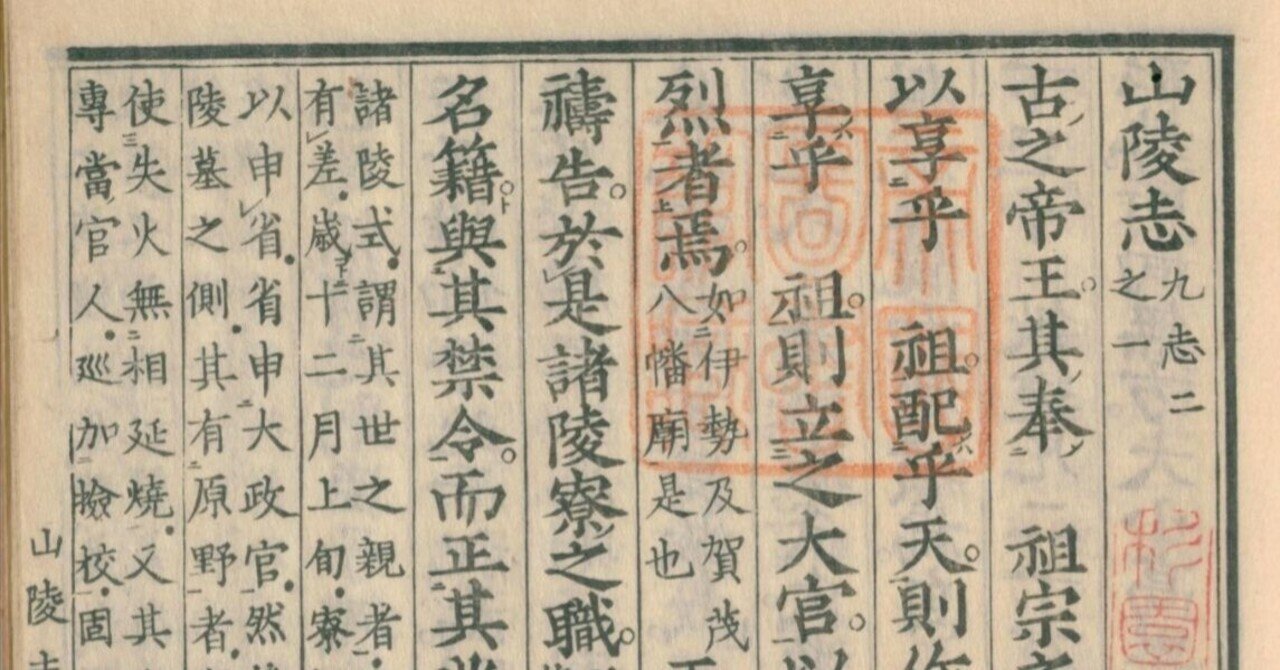 山陵志 九志二
之一
古之帝王。其奉 祖宗
以享乎 祖。配乎天。則
享乎 祖。則立之大官。以
烈者焉。如伊勢及賀茂
八幡廟是也
禱告。於是諸陵寮之職。
名籍。與其禁令。而正其
諸陵式。謂其世之親者。
有差。歲十二月上旬。寮
以申省。省申大政官。然
陵墓之側。其有原野者。
使失火無相延燒。又其
專當官人。巡加撿校。固
山陵志